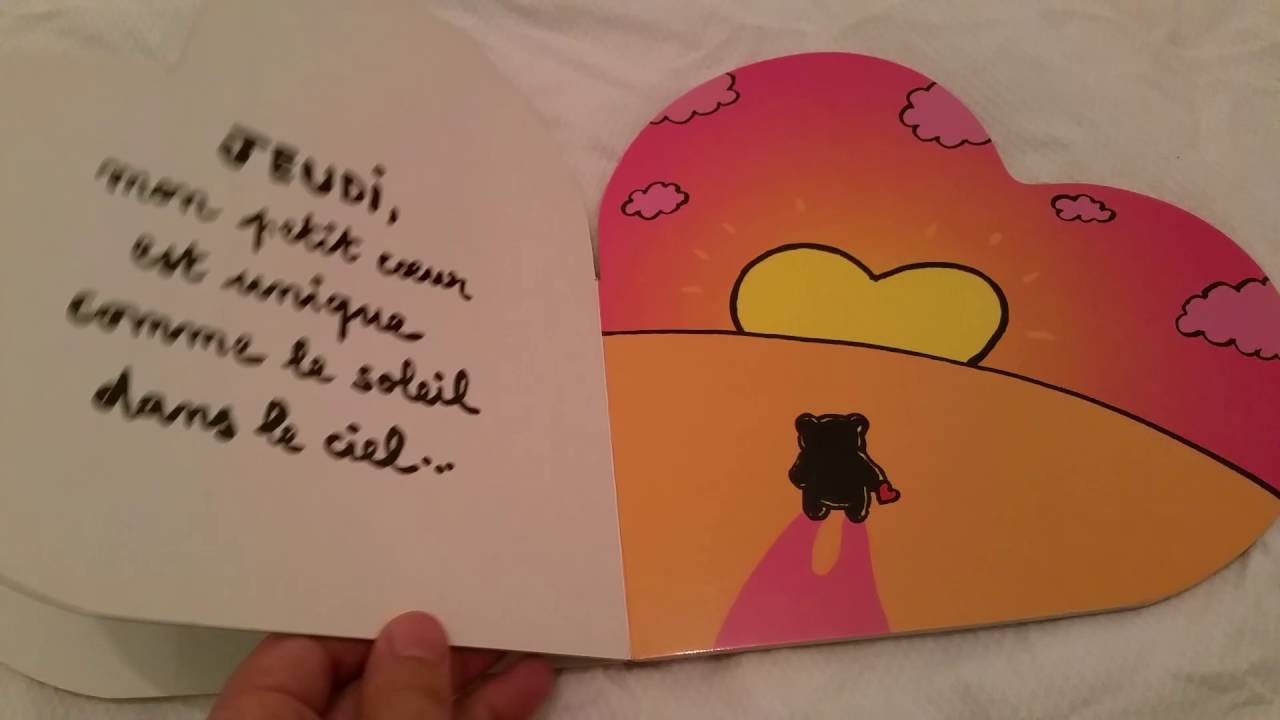 JEUDi,
mon petit cœur
est unique
comme le soleil
dans le ciel...